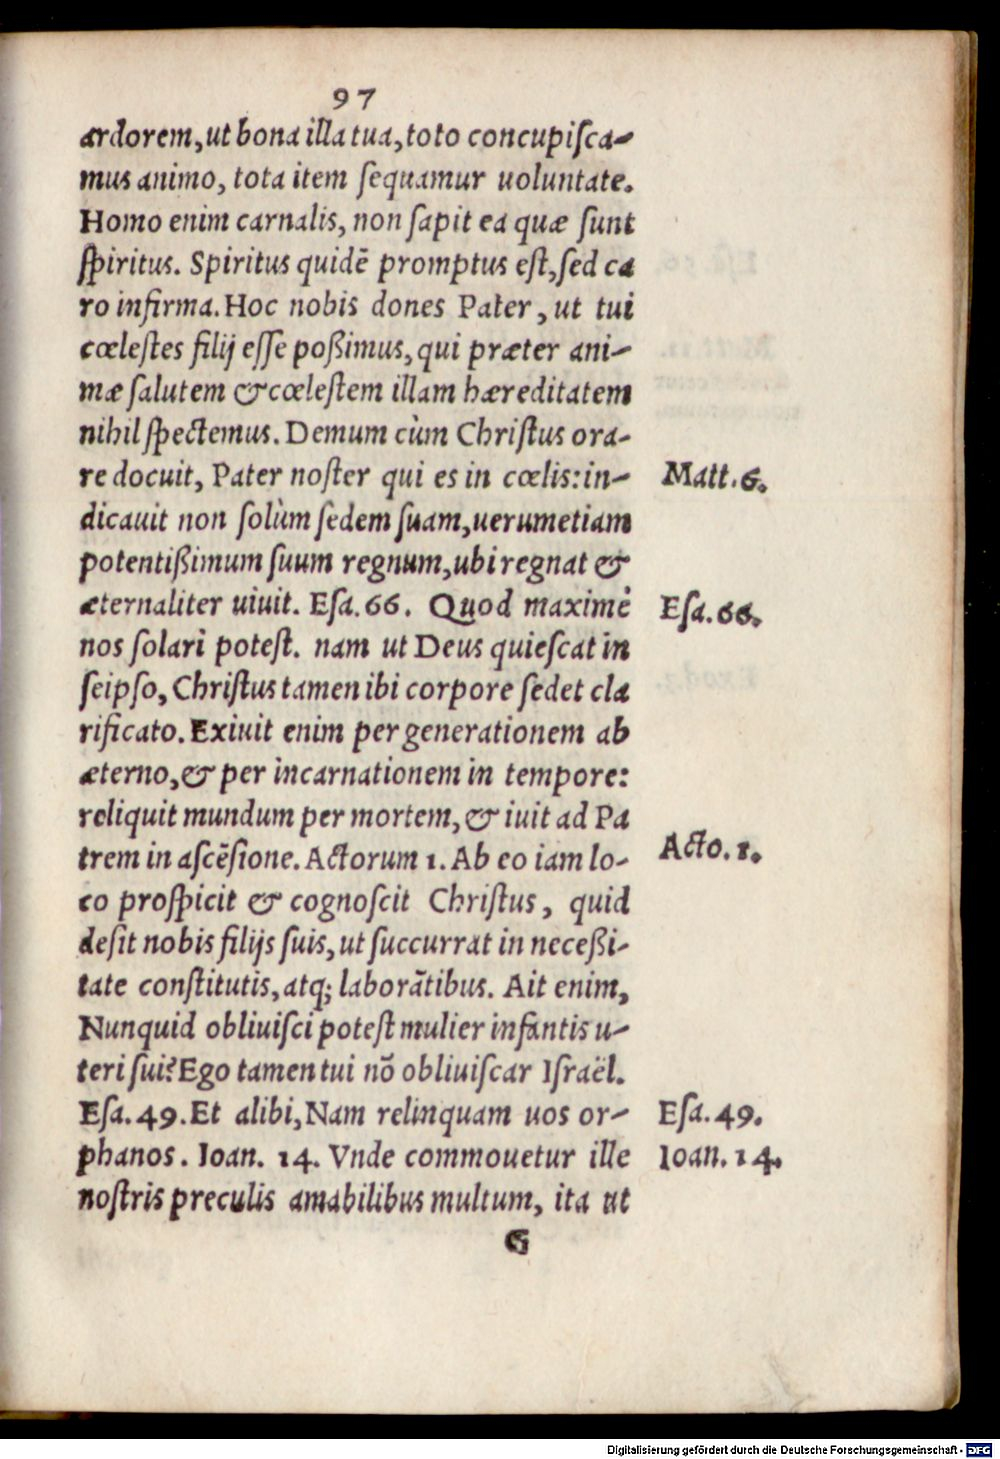 97
ardorem, ut bona illa tua, toto concupiſca-
mus animo, tota item ſequamur uoluntate.
Homo enim carnalis, non ſapit ea quæ ſunt
ſpiritus. Spiritus quidē promptus eſt, ſed ca
ro infirma. Hoc nobis dones Pater, ut tui
cœleſtes filij eſſe poßimus, qui præter ani-
mæ ſalutem & cœleſtem illam hæreditatem
nihil ſpectemus. Demum cùm Chriſtus ora-
re docuit, Pater noſter qui es in cœlis: in-
Matt. 6.
dicauit non ſolùm ſedem ſuam, uerumetiam
potentißimum ſuum regnum, ubi regnat &
æternaliter uiuit. Eſa. 66. Quod maximè
Eſa. 66.
nos ſolari poteſt. nam ut Deus quieſcat in
ſeipſo, Chriſtus tamen ibi corpore ſedet cla
rificato. Exiuit enim per generationem ab
æterno, & per incarnationem in tempore:
reliquit mundum per mortem, & iuit ad Pa
trem in aſcēſione. Actorum 1. Ab eo iam lo-
Acto. 1.
co proſpicit & cognoſcit Chriſtus, quid
deſit nobis filijs ſuis, ut ſuccurrat in neceßi-
tate conſtitutis, atq; laborātibus. Ait enim,
Nunquid obliuiſci poteſt mulier infantis u-
teri ſui? Ego tamen tui nō obliuiſcar Iſraël.
Eſa. 49. Et alibi, Nam relinquam uos or-
Eſa. 49.
phanos. Ioan. 14. Vnde commouetur ille
Ioan. 14.
noſtris preculis amabilibus multum, ita ut
G
Digitalisierung gefördert durch die Deutsche Forschungsgemeinschaft - DFG